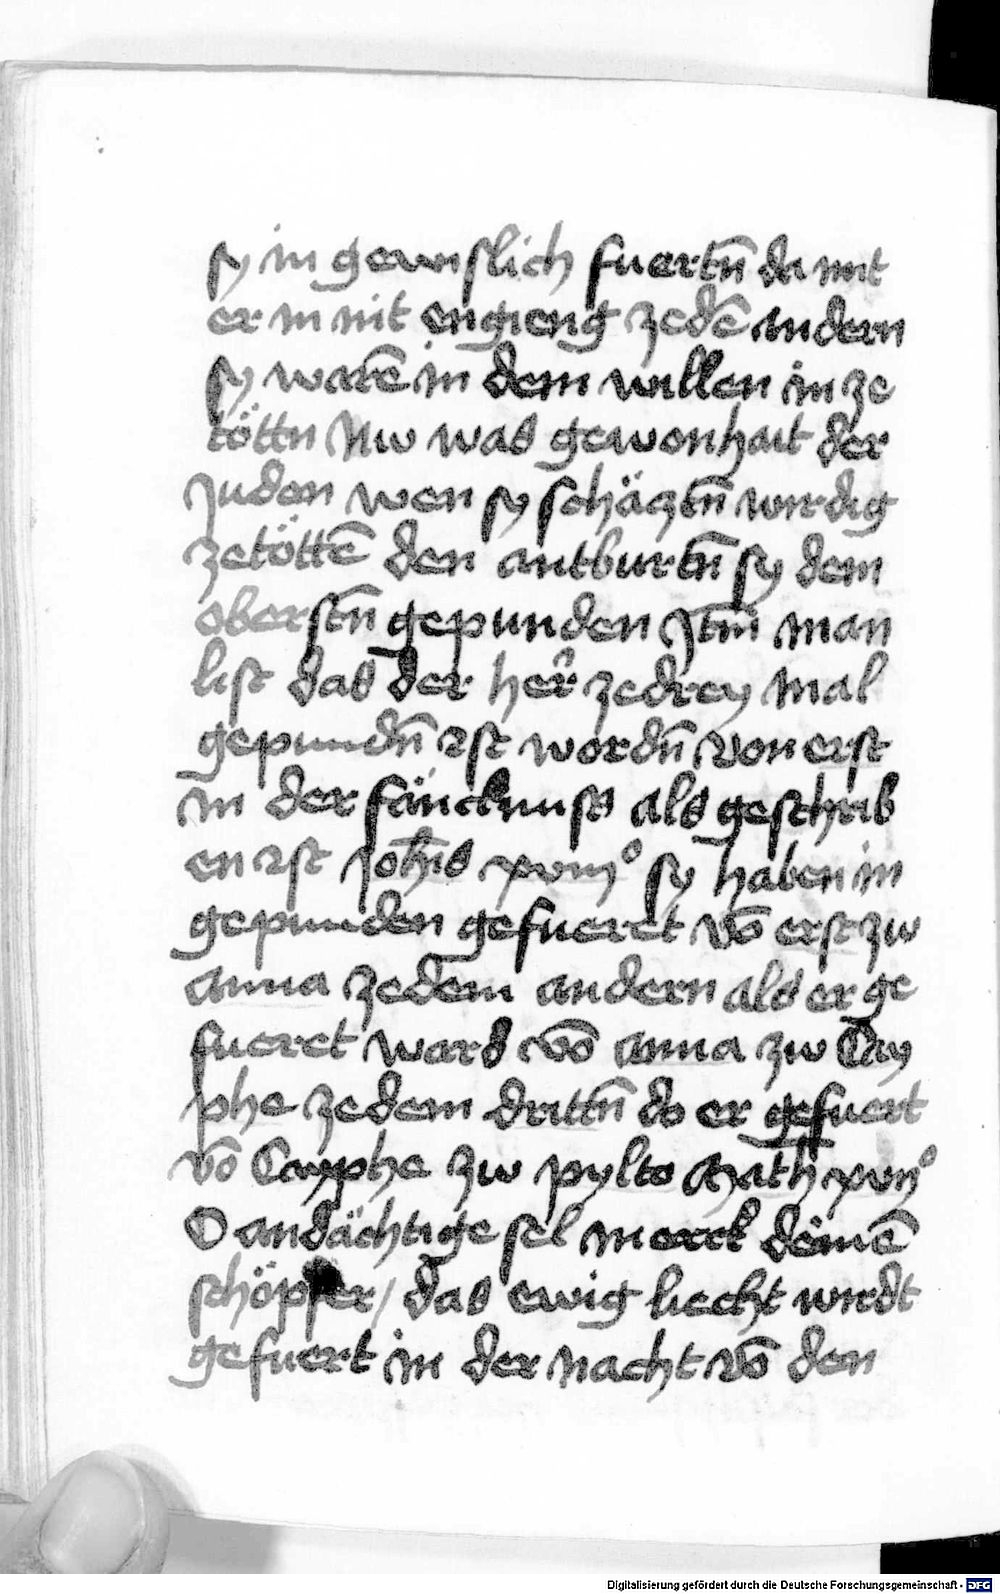 sy in gewislich fuertn̄ da mit
er in nit engieng zedē andern
sy warē in dem willen in ze
töttn Nw was gewonhait der
Juden wen sy schäcztn̄ wirdig
zetöttē den antburtn̄ sy dem
oberstn̄ gepunden Jtm̄ man
list das der her̄ zedrey mal
gepundn̄ ist wordn̄ von erst
in der fäncknuss als geschrib
en ist Joh̄is xviij° sy haben in
gepunden gefueret vō erst zw
anna zedem andern als er ge
fueret ward vō anna zw Cay
phe zedem drittn̄ do er gefuert
vō Cayphe zw pylto Math xvij°
O andächtige sel merck deinē
schöpfer / das ewig liecht wirdt
gefuert in der nacht vō den
Digitalisierung gefördert durch die Deutsche Forschungsgemeinschaft - DFG